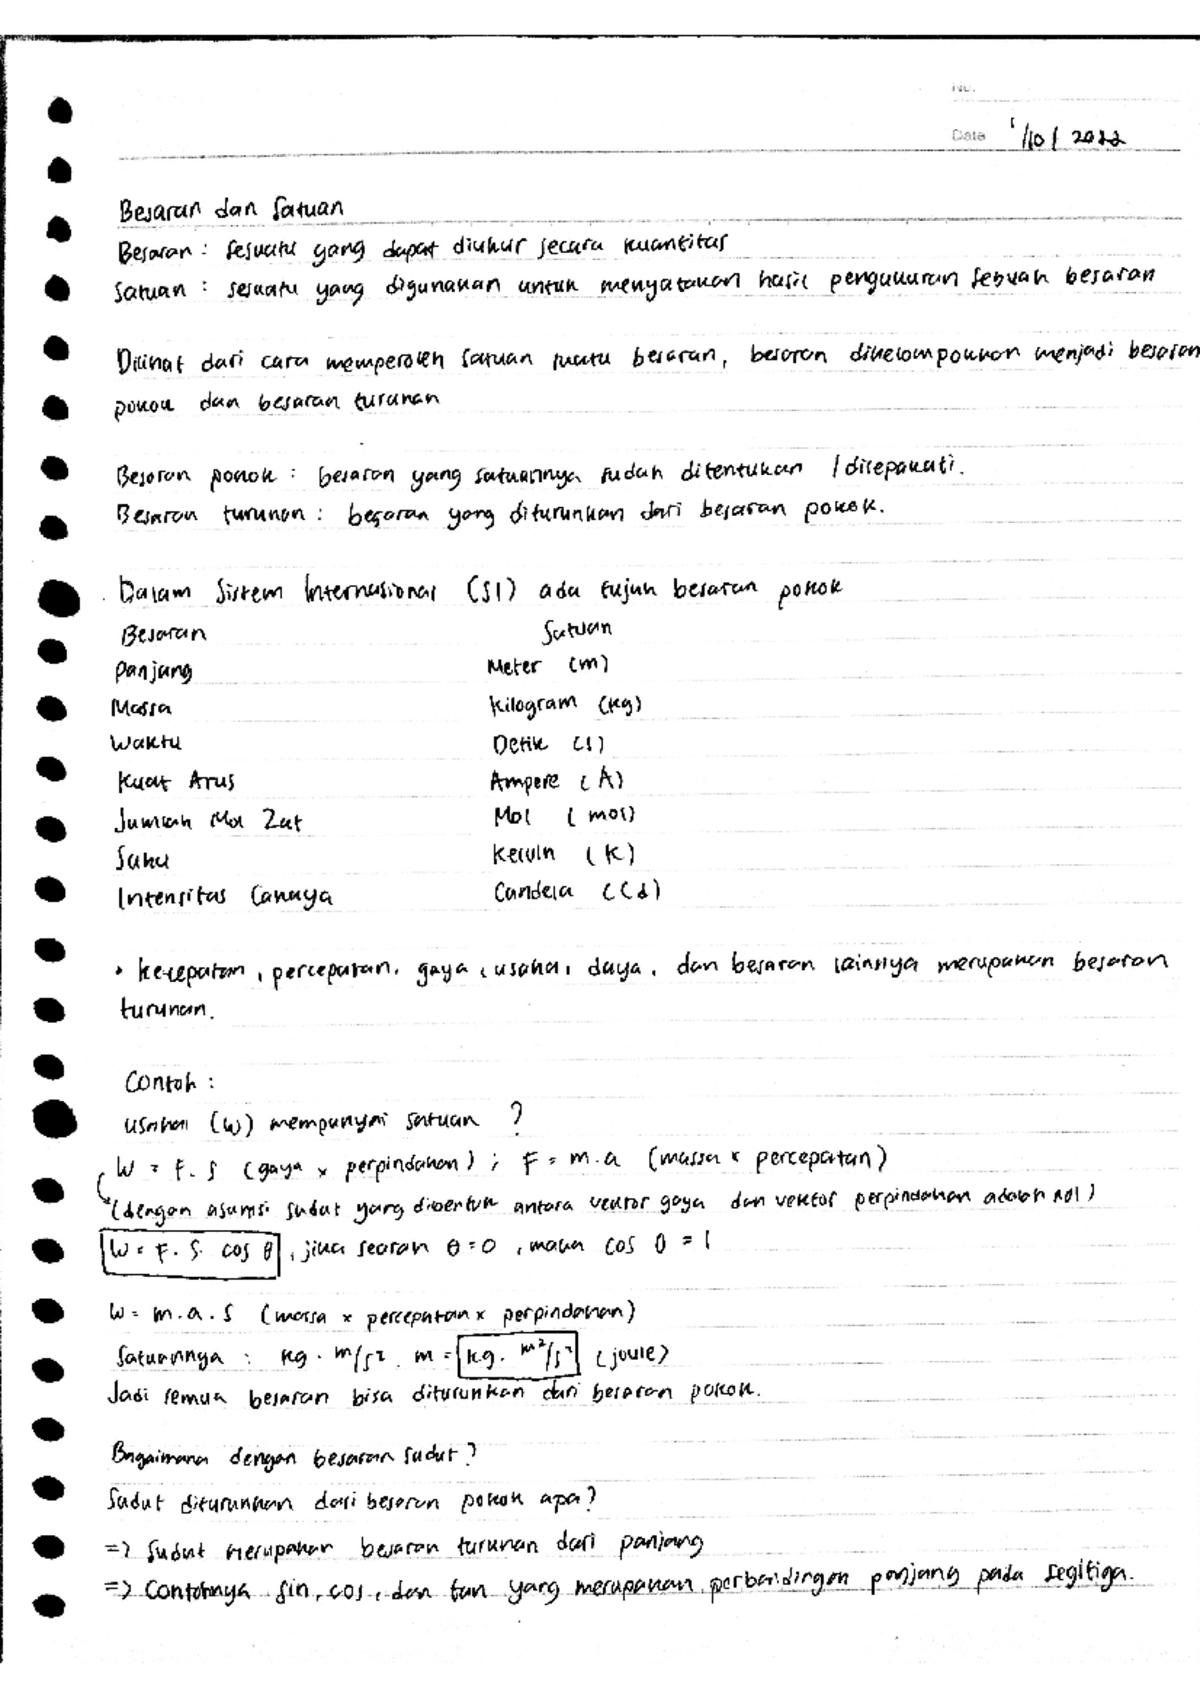 No.
Date 1/10/2022
Besaran dan Satuan
Besaran : sesuatu yang dapat diukur secara kuantitas
Satuan : sesuatu yang digunakan untuk menyatakan hasil pengukuran sebuah besaran
Dilihat dari cara memperoleh satuan suatu besaran, besaran dikelompokkan menjadi besaran
pokok dan besaran turunan
Besaran pokok : besaran yang satuannya sudah ditentukan / disepakati.
Besaran turunan : besaran yang diturunkan dari besaran pokok.
Dalam Sistem Internasional (SI) ada tujuh besaran pokok
Besaran Satuan
Panjang Meter (m)
Massa Kilogram (kg)
Waktu Detik (s)
Kuat Arus Ampere (A)
Jumlah Mol Zat Mol (mol)
Suhu Kelvin (K)
Intensitas Cahaya Candela (Cd)
• kecepatan, percepatan, gaya, usaha, daya, dan besaran lainnya merupakan besaran
turunan.
Contoh :
Usaha (W) mempunyai satuan ?
W = F. s (gaya x perpindahan) ; F = m.a (massa x percepatan)
*(dengan asumsi sudut yang dibentuk antara vektor gaya dan vektor perpindahan adalah nol)
W = F. s. cos θ , jika searah θ = 0 , maka cos 0 = 1
W = m.a.s (massa x percepatan x perpindahan)
Satuannya : kg . m/s² . m = kg. m²/s² (joule)
Jadi semua besaran bisa diturunkan dari besaran pokok.
Bagaimana dengan besaran sudut?
Sudut diturunkan dari besaran pokok apa?
=> Sudut merupakan besaran turunan dari panjang
=> Contohnya sin, cos, dan tan yang merupakan perbandingan panjang pada segitiga.